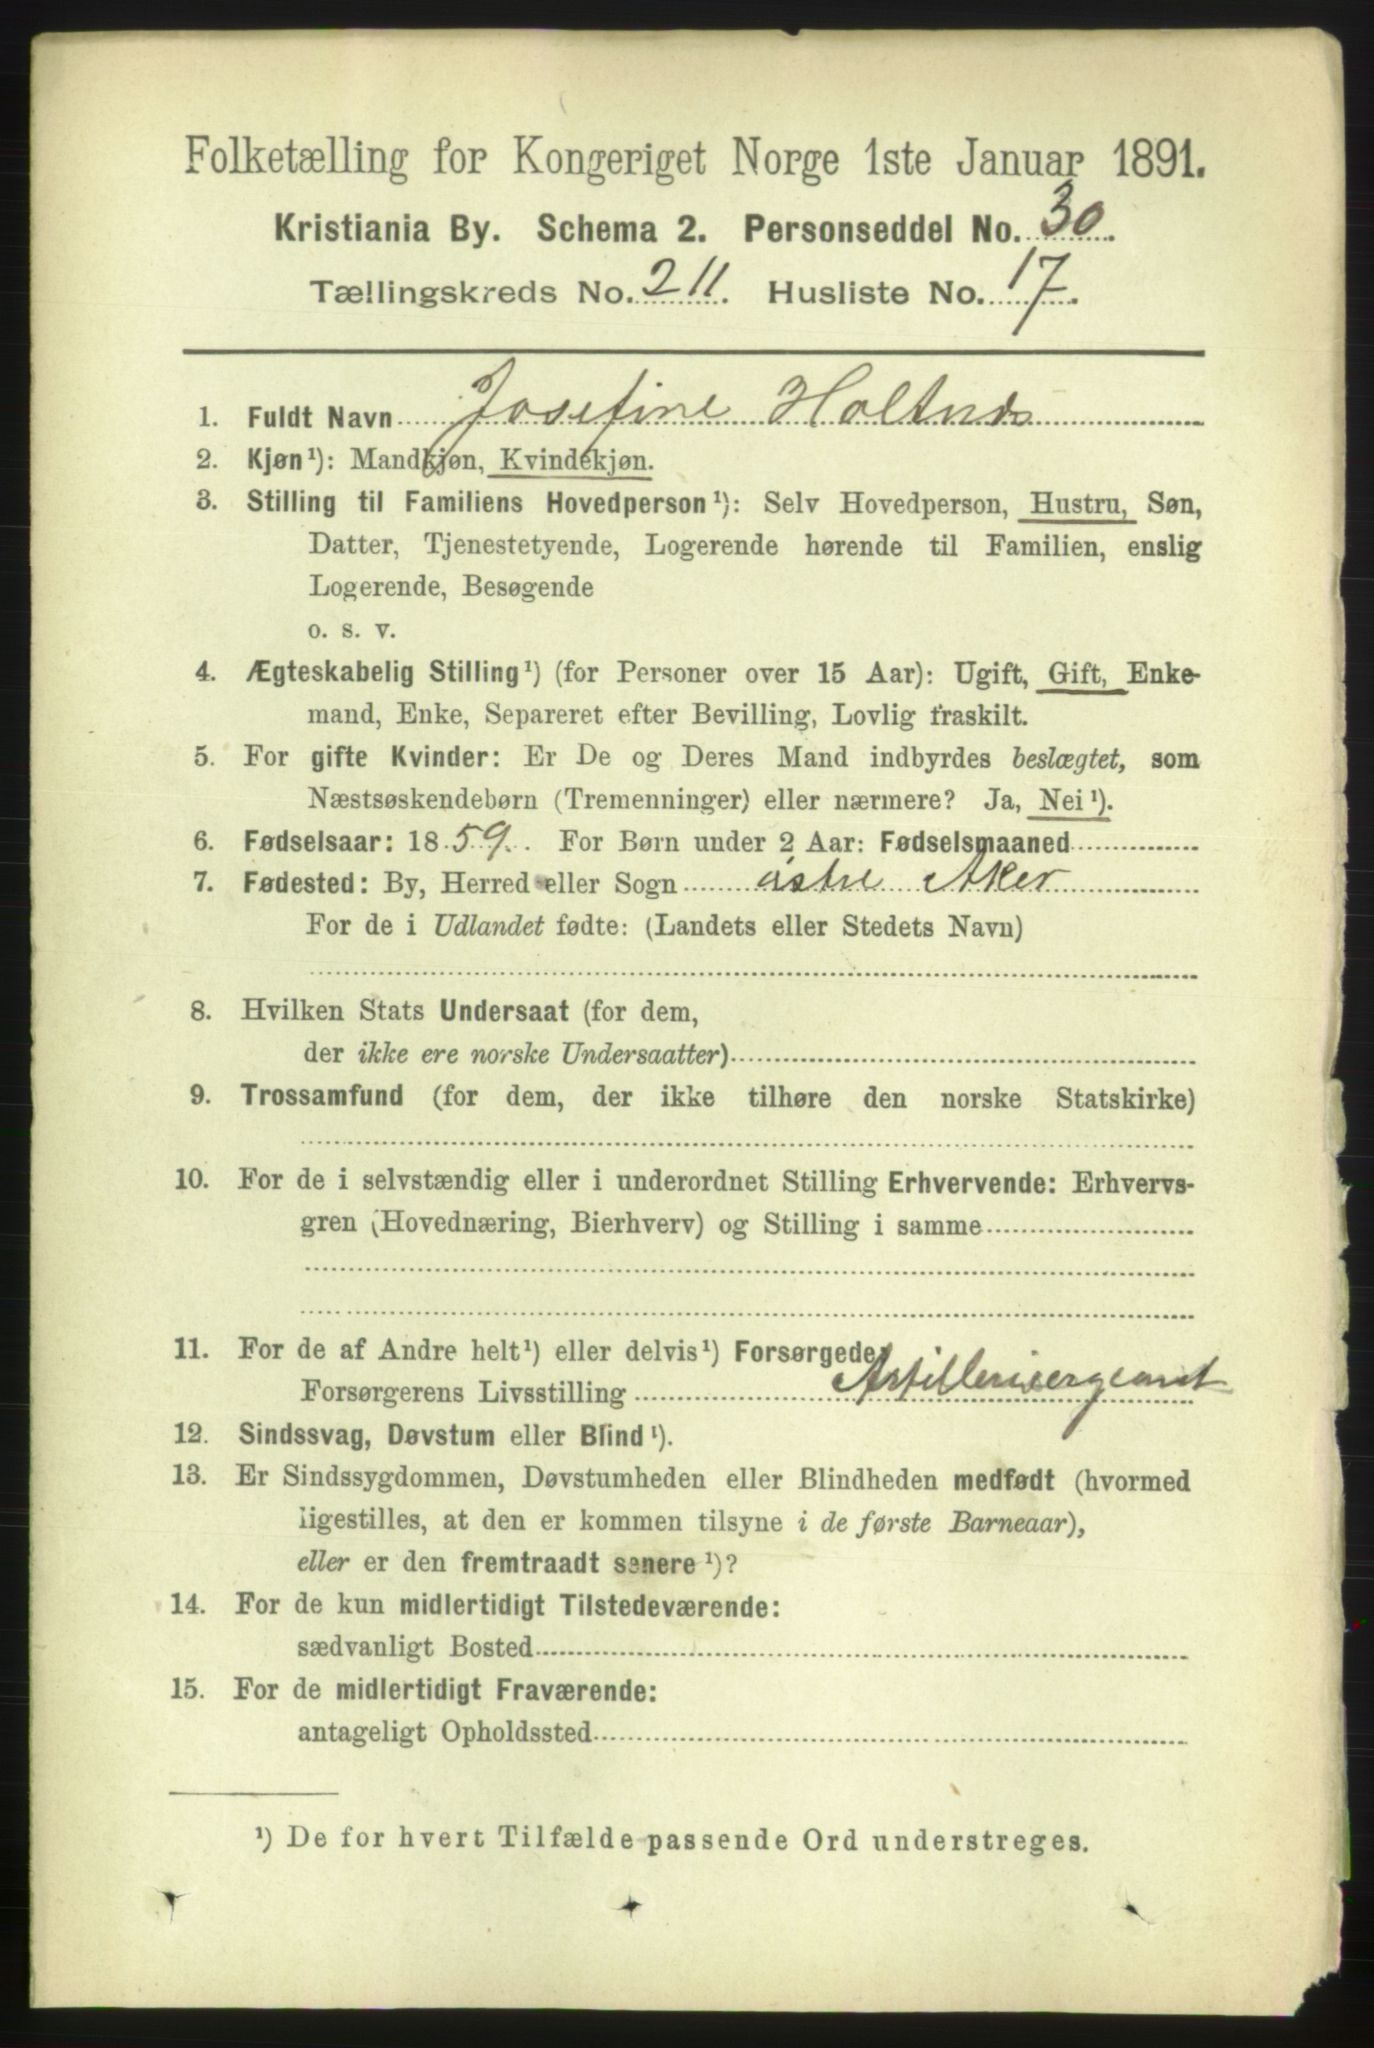 Folketælling for Kongeriget Norge 1ste Januar 1891.
Kristiania By. Schema 2. Personseddel No. 30.
Tællingskreds No. 211. Husliste No. 17.
1. Fuldt Navn Josefine
2. Kjøn¹): Mandkjøn, Kvindekjøn.
3. Stilling til Familiens Hovedperson¹): Selv Hovedperson, Hustru, Søn,
Datter, Tjenestetyende, Logerende hørende til Familien, enslig
Logerende, Besøgende
o. s. v.
4. Ægteskabelig Stilling¹) (for Personer over 15 Aar): Ugift, Gift, Enke-
mand, Enke, Separeret efter Bevilling, Lovlig fraskilt.
5. For gifte Kvinder: Er De og Deres Mand indbyrdes beslægtet, som
Næstsøskendebørn (Tremenninger) eller nærmere? Ja, Nei¹).
6. Fødselsaar: 1859. For Børn under 2 Aar: Fødselsmaaned
7. Fødested: By, Herred eller Sogn østre Aker
For de i Udlandet fødte: (Landets eller Stedets Navn)
8. Hvilken Stats Undersaat (for dem,
der ikke ere norske Undersaatter)
9. Trossamfund (for dem, der ikke tilhøre den norske Statskirke)
10. For de i selvstændig eller i underordnet Stilling Erhvervende: Erhvervs-
gren (Hovednæring, Bierhverv) og Stilling i samme
11. For de af Andre helt¹) eller delvis¹) Forsørgede,
Forsørgerens Livsstilling Artillerisergeant
12. Sindssvag, Døvstum eller Blind¹).
13. Er Sindssygdommen, Døvstumheden eller Blindheden medfødt (hvormed
ligestilles, at den er kommen tilsyne i de første Barneaar),
eller er den fremtraadt senere¹)?
14. For de kun midlertidigt Tilstedeværende:
sædvanligt Bosted
15. For de midlertidigt Fraværende:
antageligt Opholdssted
¹) De for hvert Tilfælde passende Ord understreges.